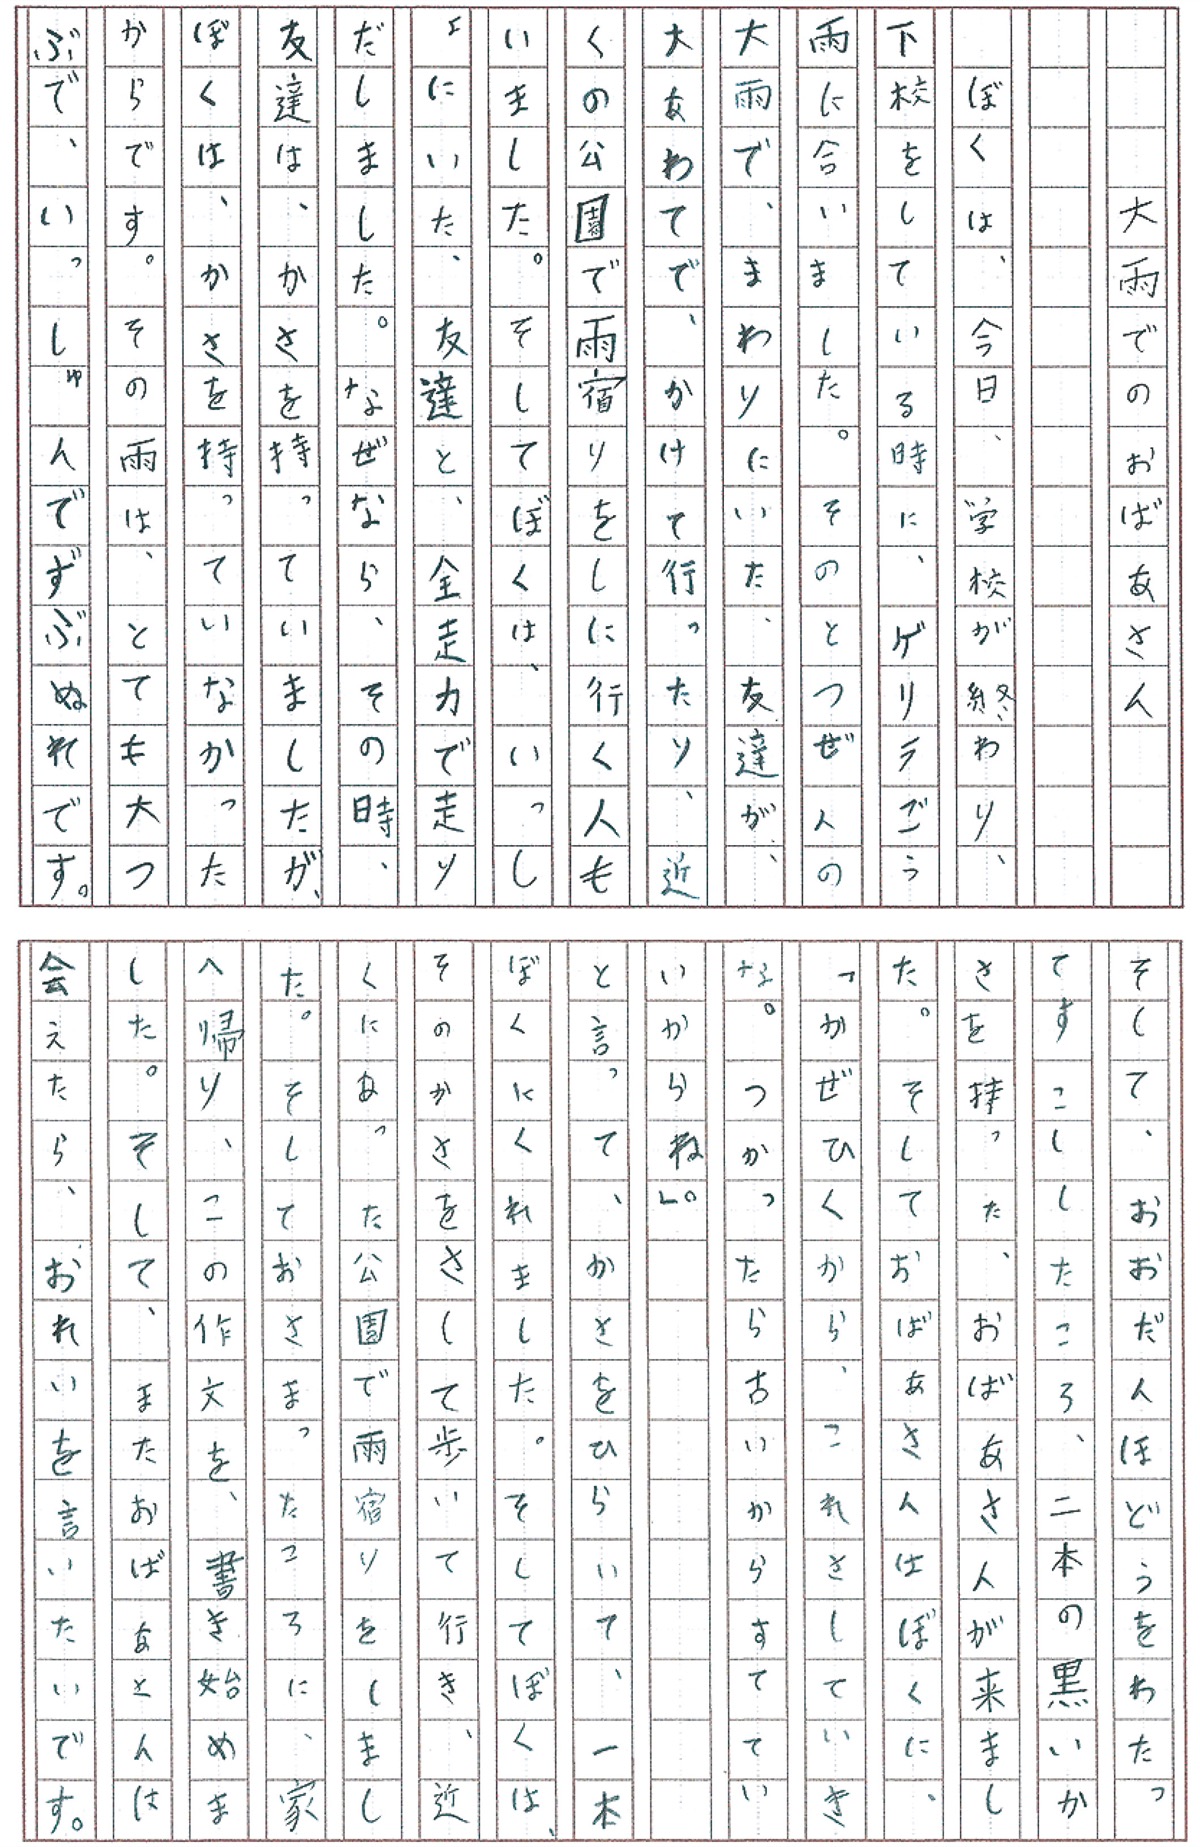 大雨でのおばあさん
ぼくは、今日、学校が終わり、
下校をしている時に、ゲリラごう
雨に合いました。そのとつぜんの
大雨で、まわりにいた、友達が、
大あわてで、かけて行ったり、近
くの公園で雨宿りをしに行く人も
いました。そしてぼくは、いっし
ょにいた、友達と、全走力で走り
だしました。なぜなら、その時、
友達は、かさを持っていましたが、
ぼくは、かさを持っていなかった
からです。その雨は、とても大つ
ぶで、いっしゅんでずぶぬれです。
そして、おおだんほどうをわたっ
てすこししたころ、二本の黒いか
さを持った、おばあさんが来まし
た。そしておばあさんはぼくに、
「かぜひくから、これさしていき
な。つかったら古いからすててい
いからね」。
と言って、かさをひらいて、一本
ぼくにくれました。そしてぼくは、
そのかさをさして歩いて行き、近
くにあった公園で雨宿りをしまし
た。そしておさまったころに、家
へ帰り、この作文を、書き始めま
した。そして、またおばあとんは
会えたら、おれいを言いたいです。